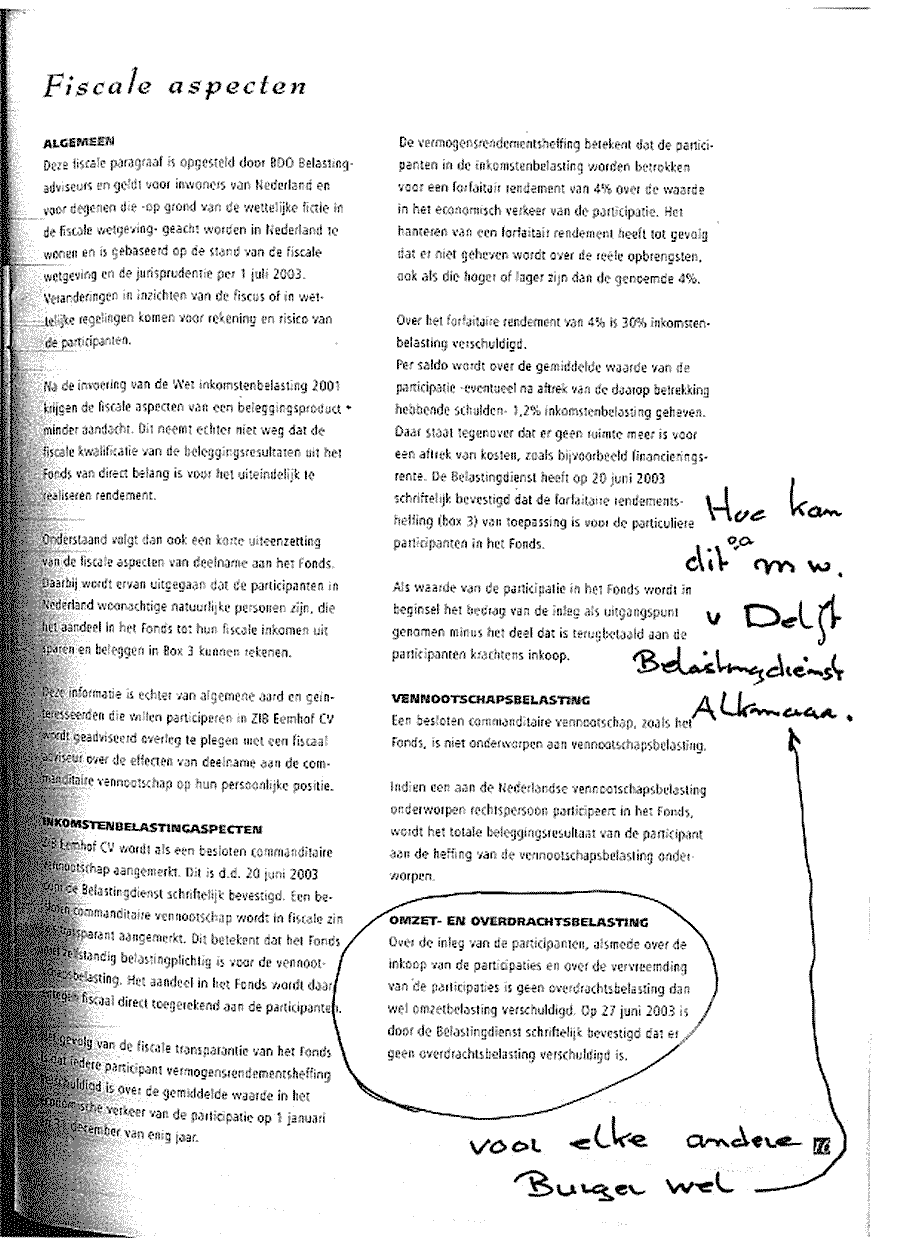 Fiscale aspecten
ALGEMEEN
Deze fiscale paragraaf is opgesteld door BDO Belasting-
adviseurs en geldt voor inwoners van Nederland en
voor degenen die -op grond van de wettelijke fictie in
de fiscale wetgeving- geacht worden in Nederland te
wonen en is gebaseerd op de stand van de fiscale
wetgeving en de jurisprudentie per 1 juli 2003.
Veranderingen in inzichten van de fiscus of in wet-
telijke regelingen komen voor rekening en risico van
de participanten.
Na de invoering van de Wet inkomstenbelasting 2001
krijgen de fiscale aspecten van een beleggingsproduct
minder aandacht. Dit neemt echter niet weg dat de
fiscale kwalificatie van de beleggingsresultaten uit het
Fonds van direct belang is voor het uiteindelijk te
realiseren rendement.
Onderstaand volgt dan ook een korte uiteenzetting
van de fiscale aspecten van deelname aan het Fonds.
Daarbij wordt ervan uitgegaan dat de participanten in
Nederland woonachtige natuurlijke personen zijn, die
het aandeel in het Fonds tot hun fiscale inkomen uit
sparen en beleggen in Box 3 kunnen rekenen.
Deze informatie is echter van algemene aard en geïn-
teresseerden die willen participeren in ZIB Eemhof CV
wordt geadviseerd overleg te plegen met een fiscaal
adviseur over de effecten van deelname aan de com-
manditaire vennootschap op hun persoonlijke positie.
INKOMSTENBELASTINGASPECTEN
ZIB Eemhof CV wordt als een besloten commanditaire
vennootschap aangemerkt. Dit is d.d. 20 juni 2003
door de Belastingdienst schriftelijk bevestigd. Een be-
sloten commanditaire vennootschap wordt in fiscale zin
als transparant aangemerkt. Dit betekent dat het Fonds
niet zelfstandig belastingplichtig is voor de vennoot-
schapsbelasting. Het aandeel in het Fonds wordt daar
entegen fiscaal direct toegerekend aan de participanten.
Het gevolg van de fiscale transparantie van het Fonds
is dat iedere participant vermogensrendementsheffing
verschuldigd is over de gemiddelde waarde in het
economische verkeer van de participatie op 1 januari
en 31 december van enig jaar.
De vermogensrendementsheffing betekent dat de partici-
panten in de inkomstenbelasting worden betrokken
voor een forfaitair rendement van 4% over de waarde
in het economisch verkeer van de participatie. Het
hanteren van een forfaitair rendement heeft tot gevolg
dat er niet geheven wordt over de reële opbrengsten,
ook als die hoger of lager zijn dan de genoemde 4%.
Over het forfaitaire rendement van 4% is 30% inkomsten-
belasting verschuldigd.
Per saldo wordt over de gemiddelde waarde van de
participatie -eventueel na aftrek van de daarop betrekking
hebbende schulden- 1,2% inkomstenbelasting geheven.
Daar staat tegenover dat er geen ruimte meer is voor
een aftrek van kosten, zoals bijvoorbeeld financierings-
rente. De Belastingdienst heeft op 20 juni 2003
schriftelijk bevestigd dat de forfaitaire rendements-
heffing (box 3) van toepassing is voor de particuliere
participanten in het Fonds.
Als waarde van de participatie in het Fonds wordt in
beginsel het bedrag van de inleg als uitgangspunt
genomen minus het deel dat is terugbetaald aan de
participanten krachtens inkoop.
VENNOOTSCHAPSBELASTING
Een besloten commanditaire vennootschap, zoals het
Fonds, is niet onderworpen aan vennootschapsbelasting.
Indien een aan de Nederlandse vennootschapsbelasting
onderworpen rechtspersoon participeert in het Fonds,
wordt het totale beleggingsresultaat van de participant
aan de heffing van de vennootschapsbelasting onder-
worpen.
OMZET- EN OVERDRACHTSBELASTING
Over de inleg van de participanten, alsmede over de
inkoop van de participaties en over de vervreemding
van de participaties is geen overdrachtsbelasting dan
wel omzetbelasting verschuldigd. Op 27 juni 2003 is
door de Belastingdienst schriftelijk bevestigd dat er
geen overdrachtsbelasting verschuldigd is.
Hoe kan
dit mw.
v Delft
Belastingdienst
Alkmaar.
voor elke andere
Burger wel